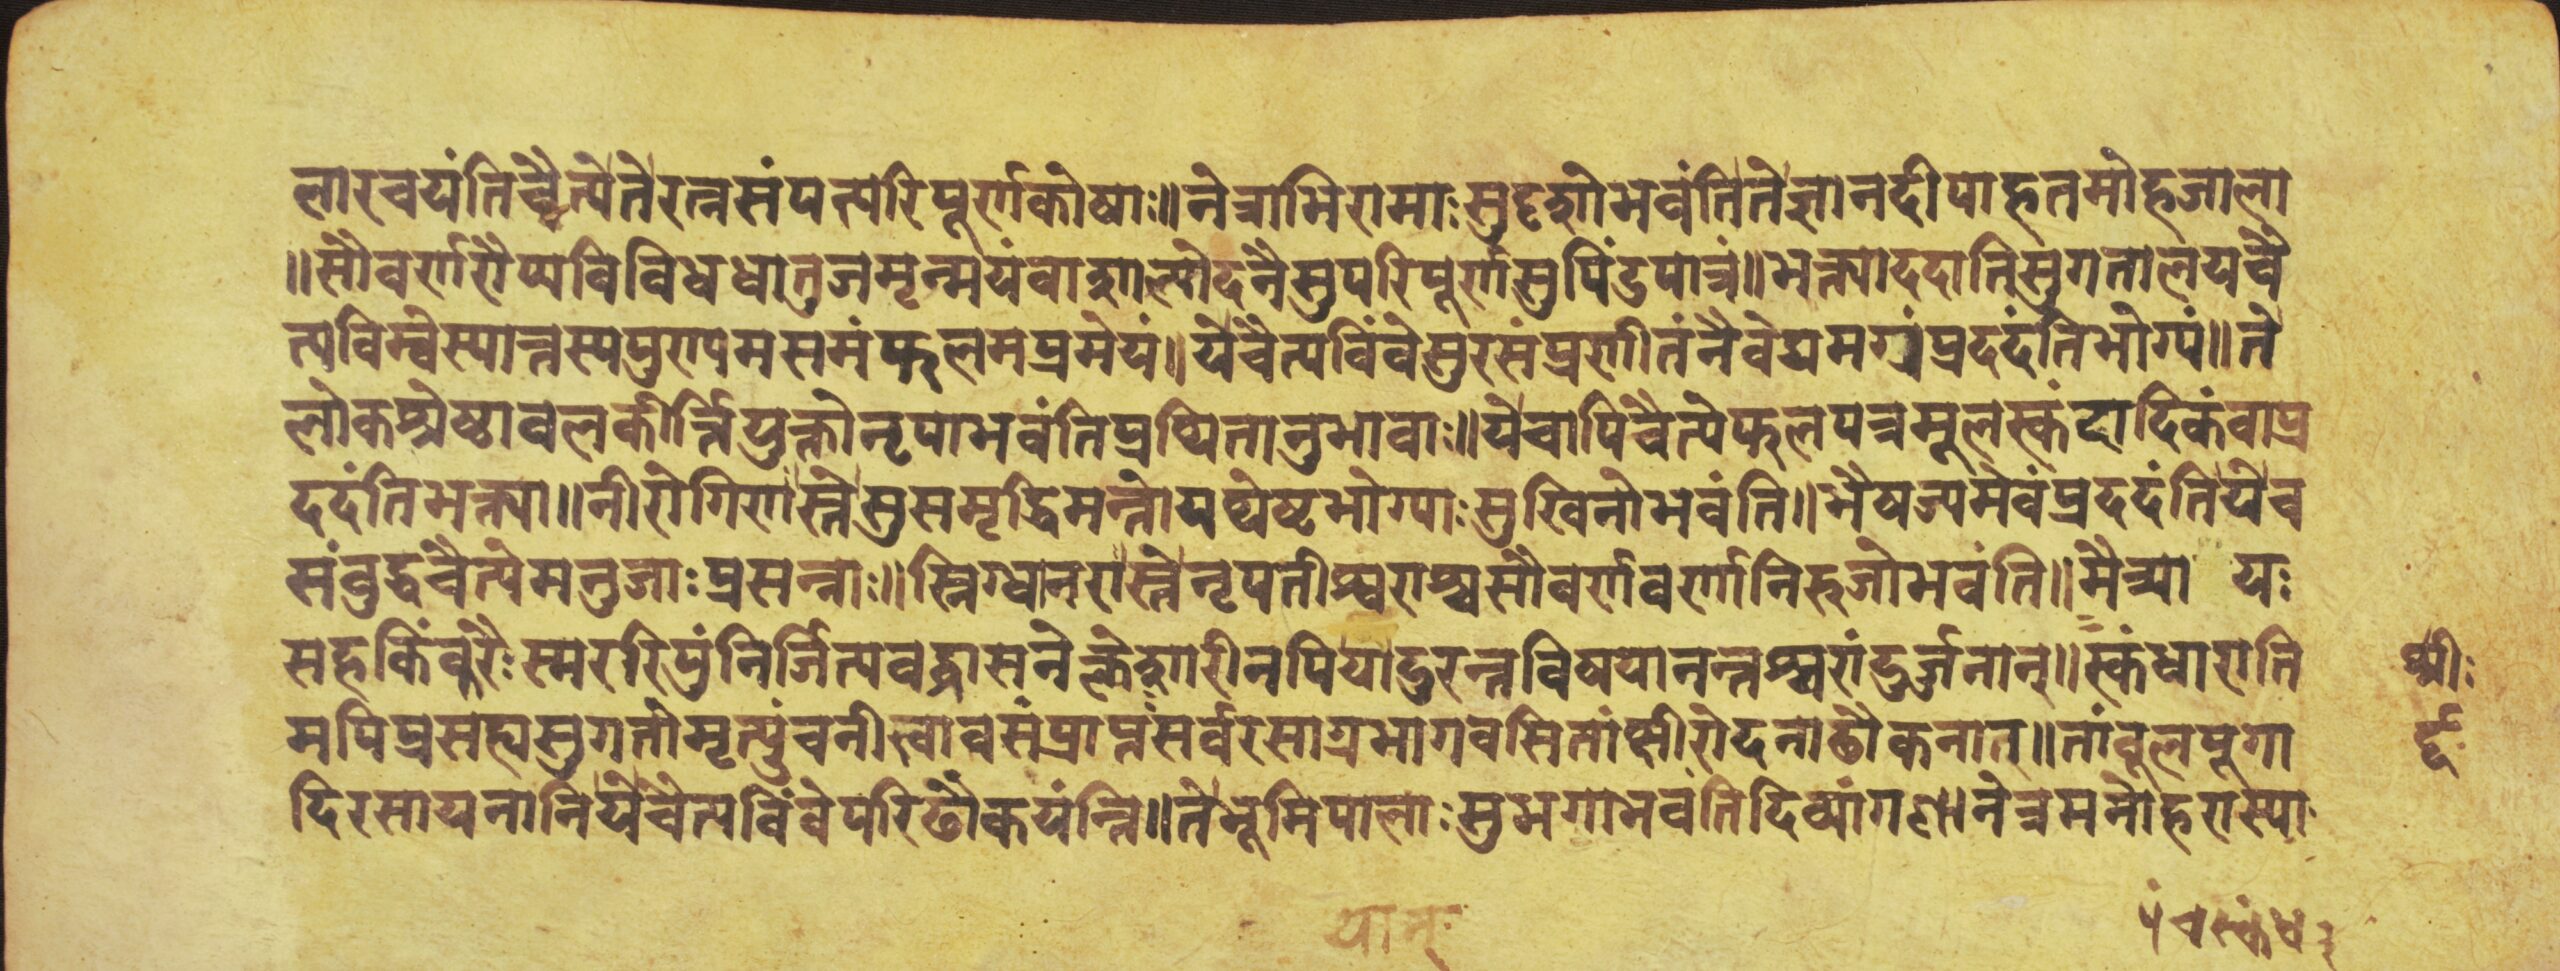 लारचयंतिचैत्येतेरत्नसंपत्परिपूर्णकोषाः॥नेत्राभिरामाःसुदृशोभवंतितेज्ञानदीपाहतमोहजाला
॥सौवर्णरौप्यविविधधातुजमृन्मयंवाशाल्योदनैसुपरिपूर्णसुपिंडपात्रं॥भक्त्याददातिसुगतालयचै
त्यविम्वेस्यान्नस्यपुण्यमसमंफलमप्रमेयं॥येचैत्यविंवेसुरसंप्रणीतंनैवेद्यमग्र्यंप्रददंतिभोग्यं॥ते
लोकश्रेष्ठावलकीर्त्तियुक्तोनृपाभवंतिप्रथितानुभावाः॥येचापिचैत्येफलपत्रमूलस्कंदादिकंवाप्र
ददंतिभक्त्या॥नीरोगिणस्तेसुसमृद्धिमन्तोयथेष्टभोग्याःसुखिनोभवंति॥भैषज्यमेवंप्रददंतियेच
संवुद्धचैत्येमनुजाःप्रसन्नाः॥स्निग्धानरास्तेनृपतीश्वराश्चसौवर्णवर्णानिरुजोभवंति॥मैत्र्या यः
सहकिंवुरैःस्मररिपुंनिर्जित्यवद्धासनेक्लेशारीनपियोदुरन्तविषयानन्तश्चरांदुर्जनान्॥स्कंधाराति
मपिप्रसह्यसुगतोमृत्युंचनीत्वावसंप्राप्तंसर्वरसाग्रभागवसितांक्षीरोदनाढौकनात्॥तांवूलपूगा
दिरसायनानियेचैत्यविंवेपरिढौकयंन्ति॥तेभूमिपालाःसुभगाभवंतिदिव्यांगणानेत्रमनोहरास्या
यान्
पंचस्कंध